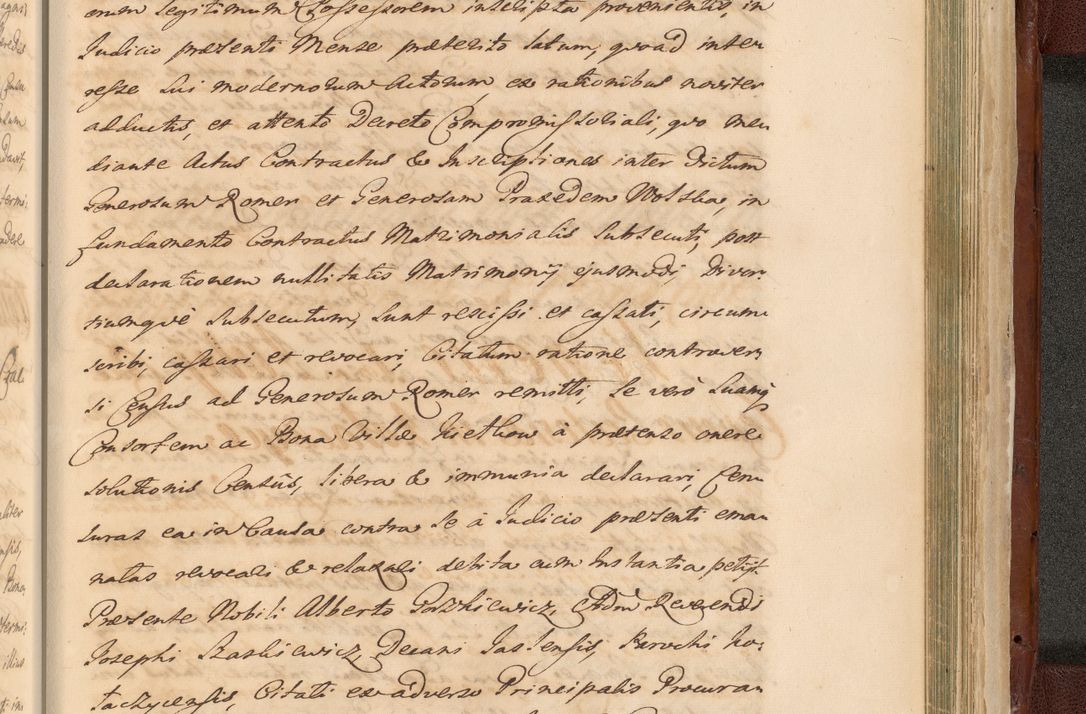 erum legitimum Possessorem inscripta provenientis, in
Judicio præsenti Mense præterito latum, quoad inter
esse sui modernorum Actorum, ex rationibus noviter
adductis, et attento Decreto Compromissoriali, quo me
diante Actus Contractus & Inscriptiones inter Dictum
Generosum Romer et Generosam Praxedem Wolska, in
fundamento Contractus Matrimonialis subsecuti, post
declarationem nullitatis Matrimonij ejusmodi, Divor
tiumque subsecutum, sunt rescissi et cassati, circum
scribi, cassari et revocari, Citatum ratione controver
si Census ad Generosum Romer remitti, se verò suamq
Consortem ac Bona Villæ à prætenso onere
solutionis Censûs, libera & immunia declarari, Cen
suras ex in Causa contra se à Judicio præsenti ema
natas revocali & relaxali debita cum Instantia, petijt
Præsente Nobili Alberto Gorzkiewicz, Adm Reverendi
Josephi Staskiewicz, Decani Jaslensis, Parochi
Citati ex adverso Principalis Procuran